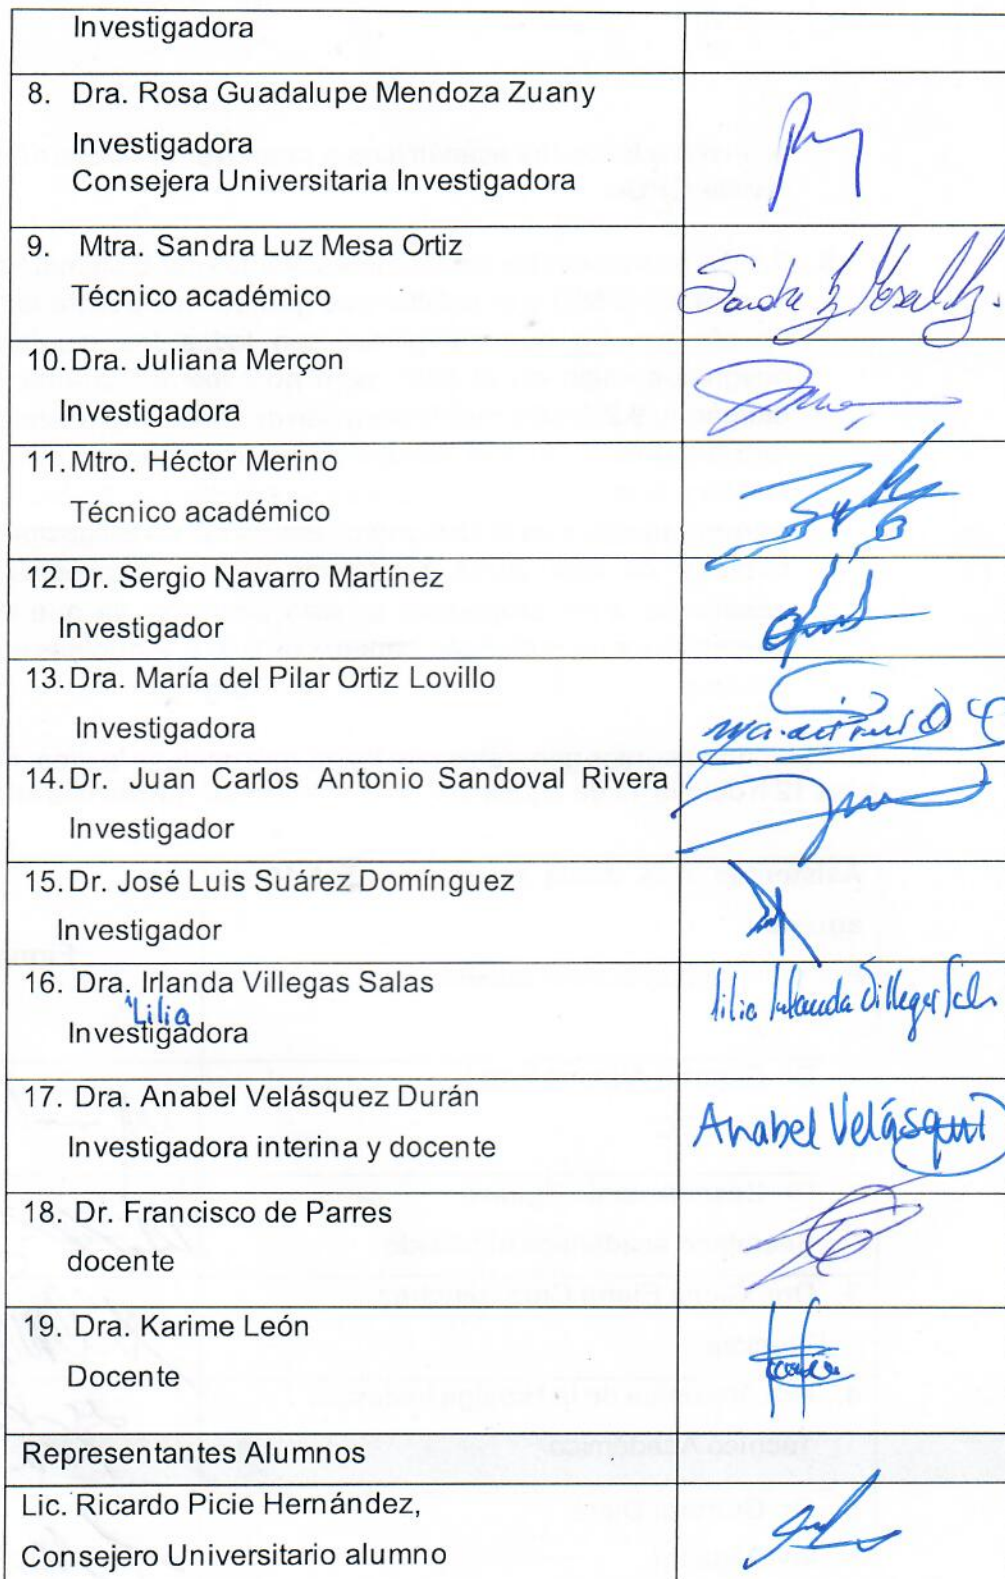 Investigadora
8. Dra. Rosa Guadalupe Mendoza Zuany
Investigadora
Consejera Universitaria Investigadora
9. Mtra. Sandra Luz Mesa Ortiz
Técnico académico
10. Dra. Juliana Merçon
Investigadora
11. Mtro. Héctor Merino
Técnico académico
12. Dr. Sergio Navarro Martínez
Investigador
13. Dra. María del Pilar Ortiz Lovillo
Investigadora
14. Dr. Juan Carlos Antonio Sandoval Rivera
Investigador
15. Dr. José Luis Suárez Domínguez
Investigador
16. Dra. Irlanda Villegas Salas
Lilia
Investigadora
17. Dra. Anabel Velásquez Durán
Anabel Velásquez
Investigadora interina y docente
18. Dr. Francisco de Parres
docente
19. Dra. Karime León
Docente
Representantes Alumnos
Lic. Ricardo Picie Hernández,
Consejero Universitario alumno